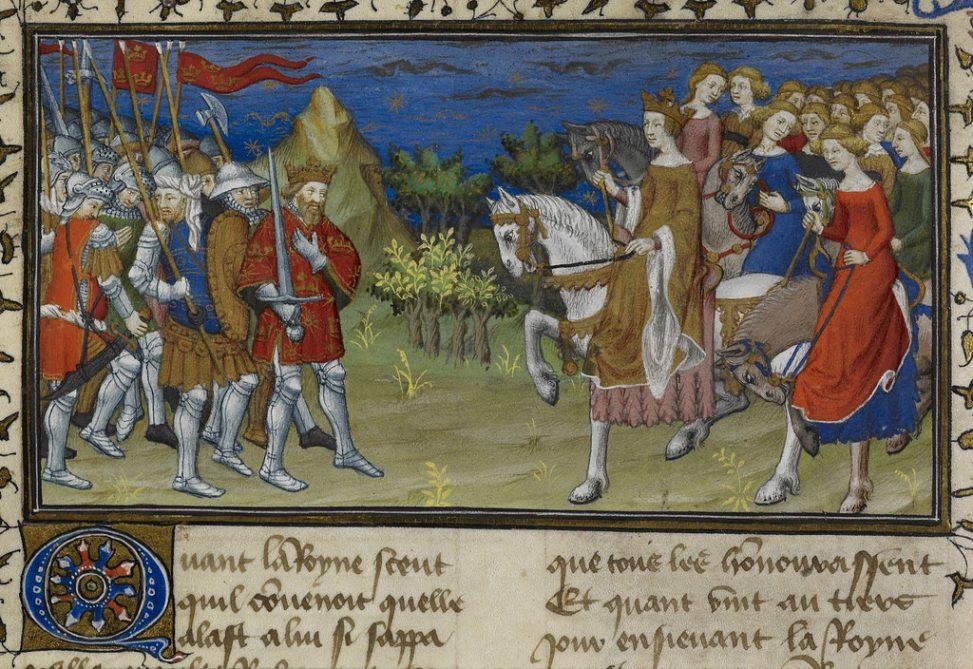 Quant la Royne sceut
quil couenoit quelle
alast a lui si sappa
que tous les honouraissent
Et quant vint au tiers
Jour ensieuant la Royne